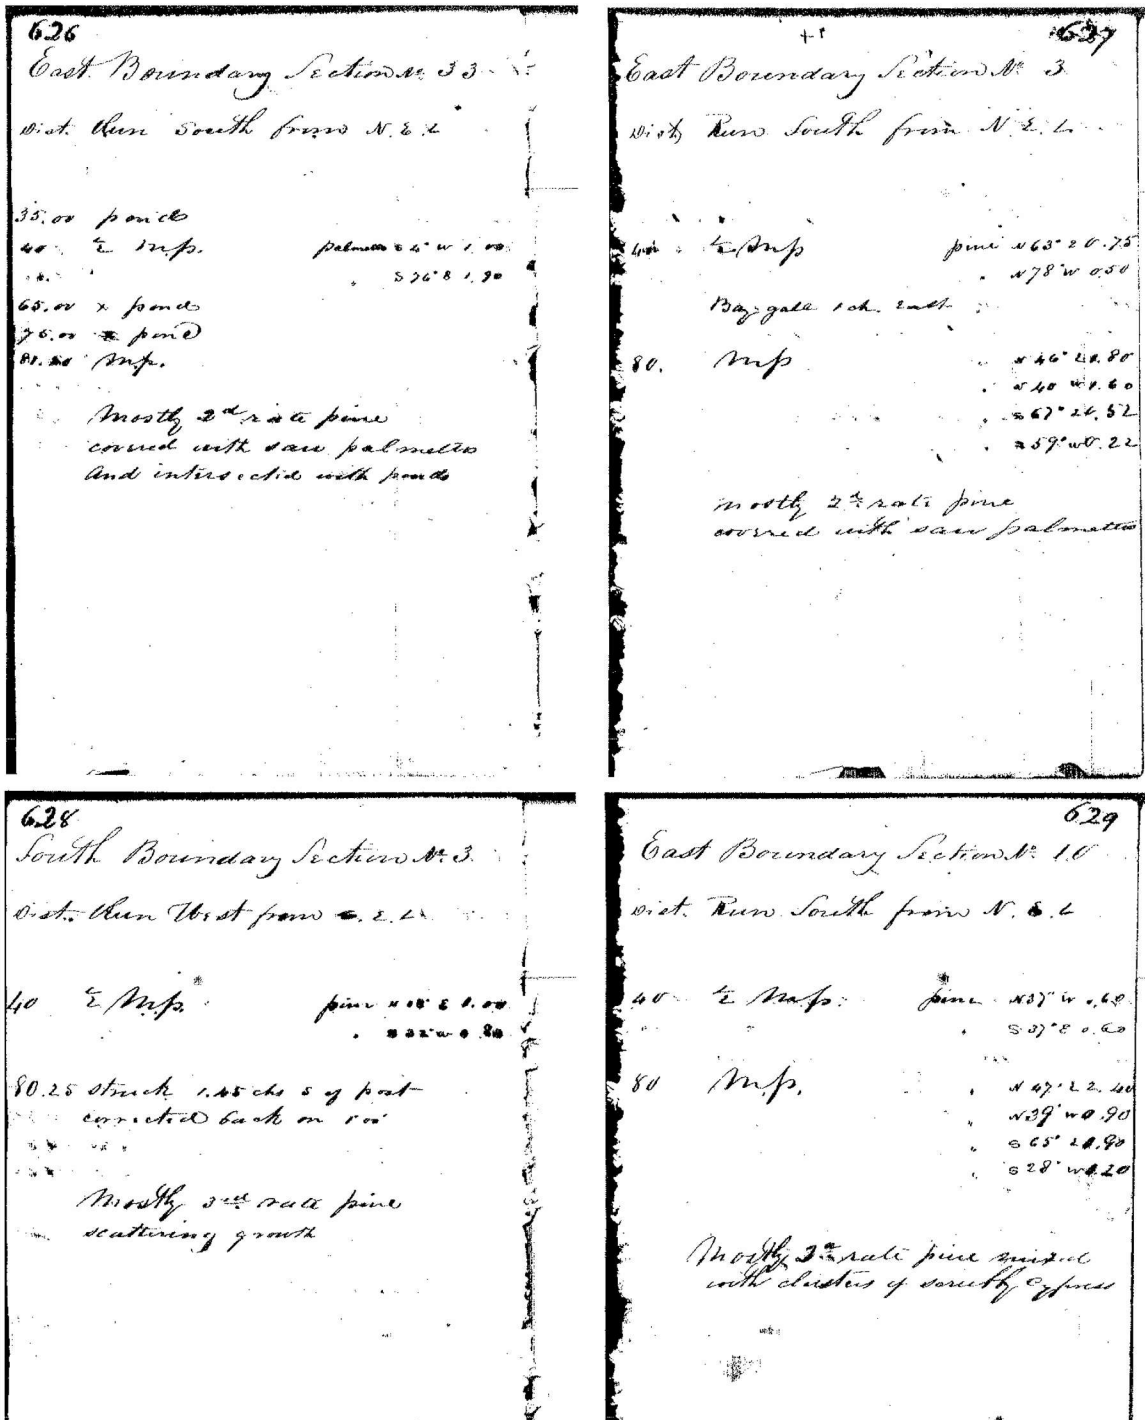 626
East Boundary Section No. 33
Dist. Run South from N. E. C
35.00 pond
40 ½ M.p. palmetto S 4° W 1.00
" S 76° E 1.90
65.00 x pond
75.00 pond
M.p.
Mostly 2d rate pine
covered with saw palmetto
And intersected with ponds
627
East Boundary Section No 3
Dist Run South from N. E. C.
40 ½ M p pine N 63° E 0.75
" N 78° W 0.50
Bay gall 1 ch. East
80. M p " N 46° E 0.80
" N 40 W 0.60
" S 67° E 0.52
" S 59° W 0.22
Mostly 2d rate pine
covered with saw palmetto
628
South Boundary Section No. 3
Dist. Run West from S. E. C
40 ½ M.p. pine E 1.00
80.25 struck 1.45 chs S of post
corrected back on
Mostly 3rd rate pine
scattering growth
629
East Boundary Section No 10
Dist. Run South from N. E. C
40 ½ M.p. pine N 37° W 0.60
" S 37° E 0.60
80 M.p. " N 47° E 2.40
" N 39° W 0.90
" S 65° E 0.90
" S 28° W 0.20
Mostly 3d rate pine mixed
with clusters of scrubby Cypress